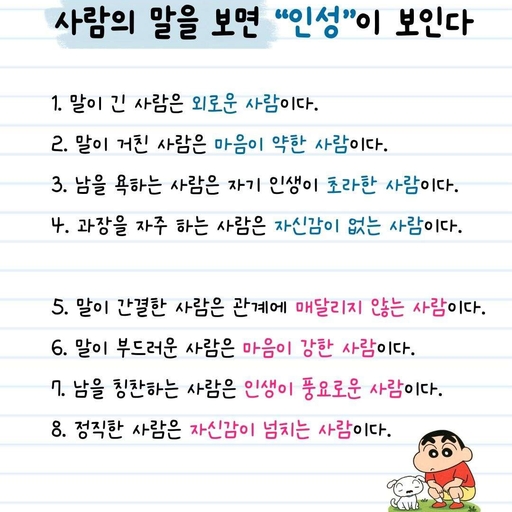 사람의 말을 보면 “인성”이 보인다
1. 말이 긴 사람은 외로운 사람이다.
2. 말이 거친 사람은 마음이 약한 사람이다.
3. 남을 욕하는 사람은 자기 인생이 초라한 사람이다.
4. 과장을 자주 하는 사람은 자신감이 없는 사람이다.
5. 말이 간결한 사람은 관계에 매달리지 않는 사람이다.
6. 말이 부드러운 사람은 마음이 강한 사람이다.
7. 남을 칭찬하는 사람은 인생이 풍요로운 사람이다.
8. 정직한 사람은 자신감이 넘치는 사람이다.